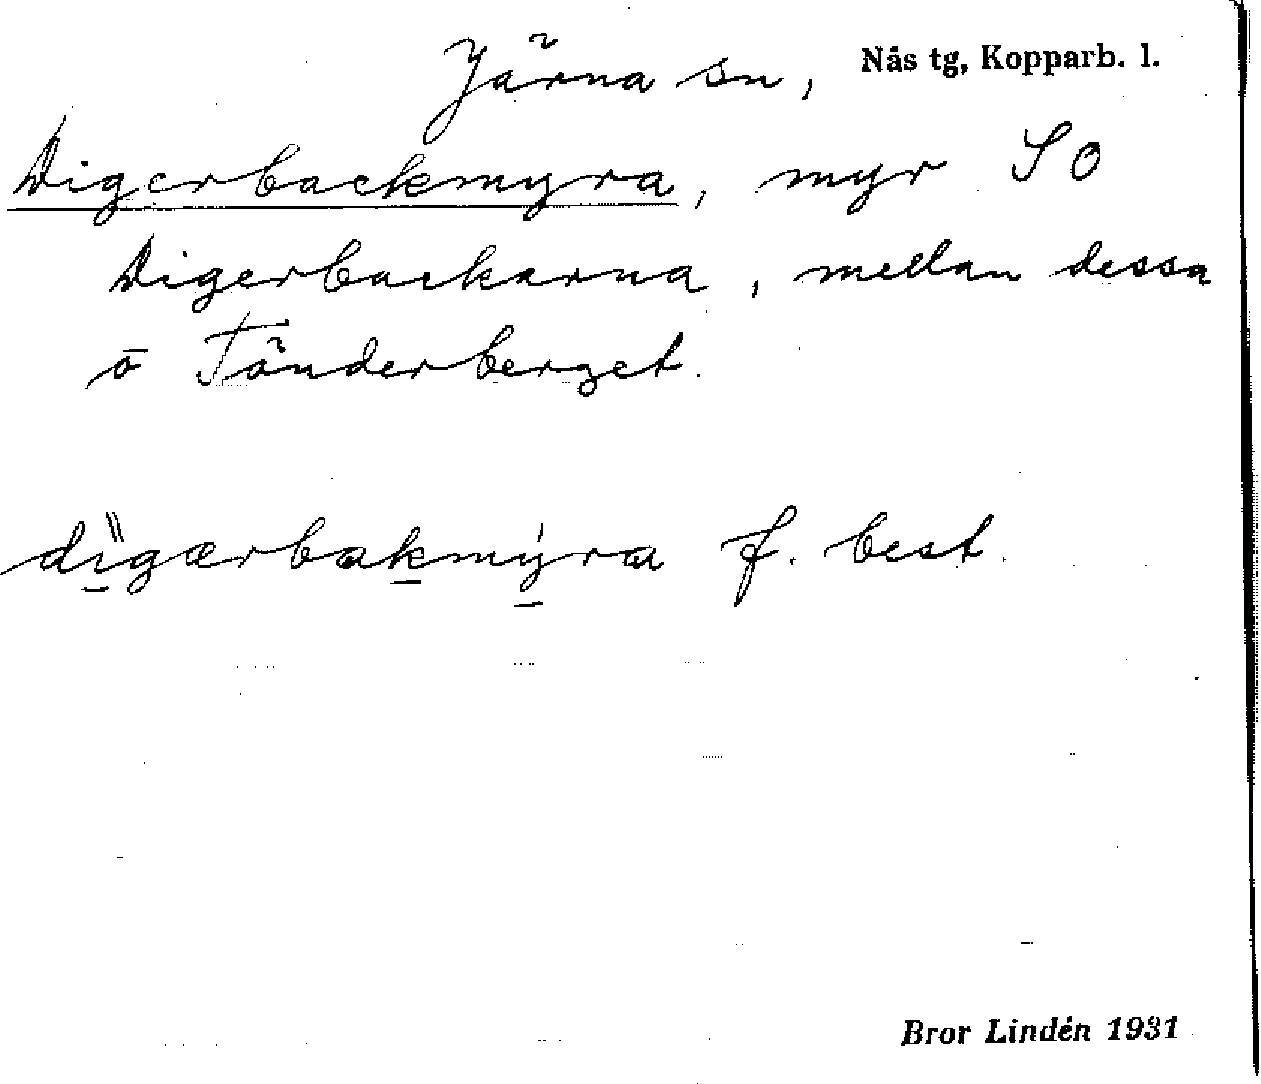 Järna sn, Nås tg, Kopparb. l.
Digerbackmyra, myr SO
Digerbackarna, mellan dessa
o Tönderberget.
dìgærbakmýra f. best.
Bror Lindén 1931